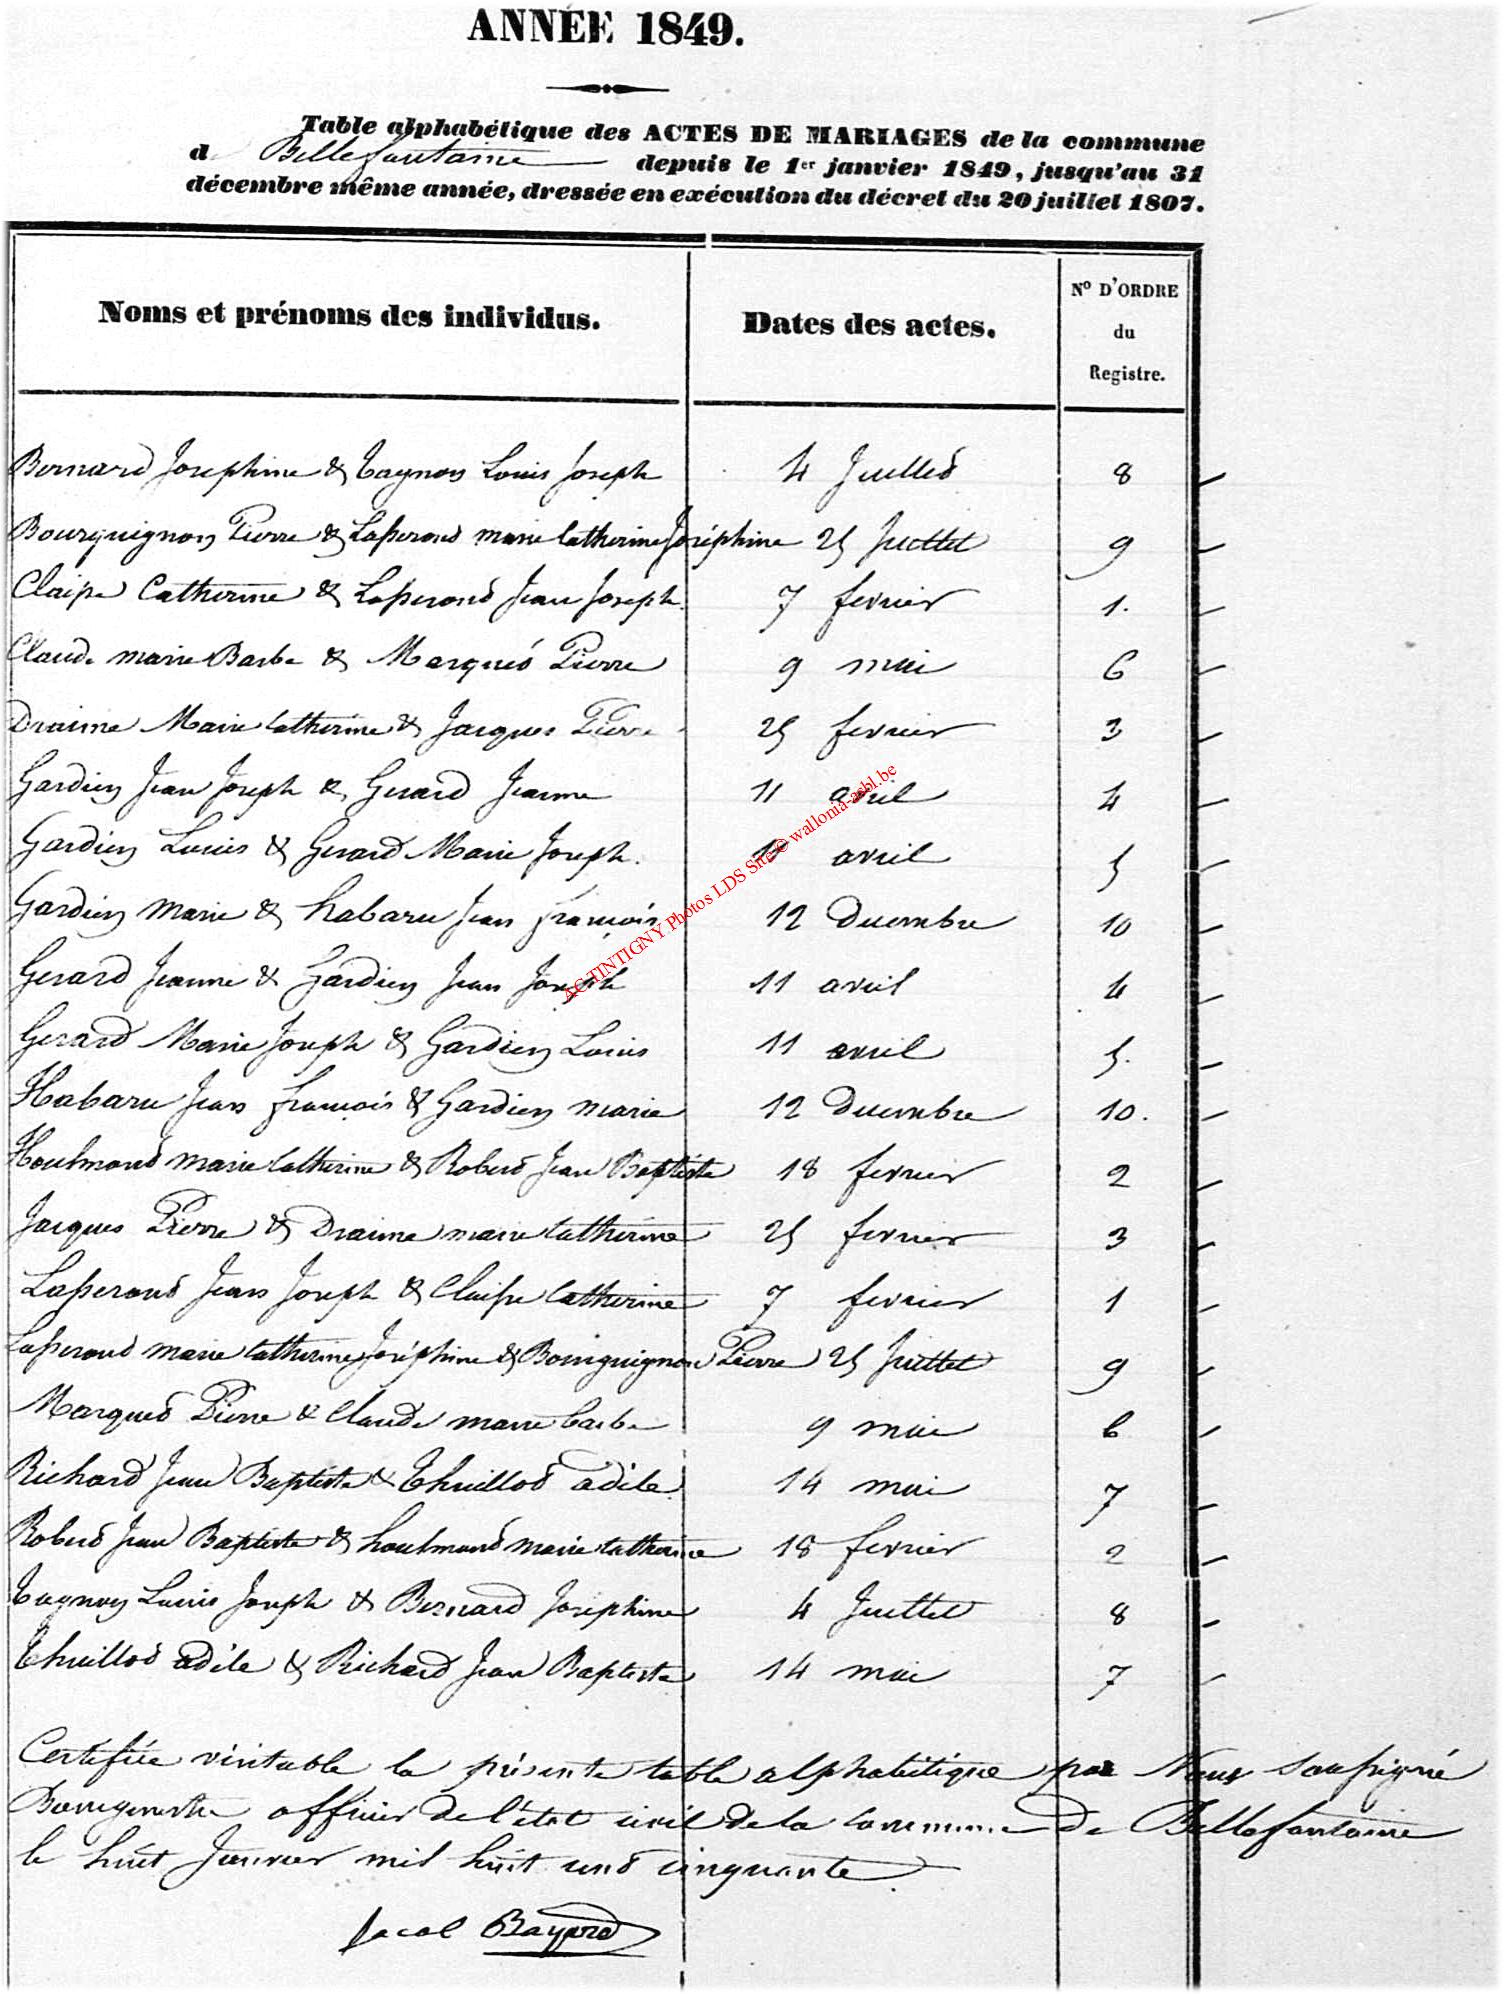 ANNÉE 1849.
Table alphabétique des ACTES DE MARIAGES de la commune
d Bellefontaine depuis le 1er janvier 1849, jusqu'au 31
décembre même année, dressée en exécution du décret du 20 juillet 1807.
Noms et prénoms des individus. Dates des actes. No D'ORDRE
du
Registre.
Bernard Josephine & Tagnon Louis Joseph 4 Juillet 8
Bourguignon Pierre & Lasserand marie Catherine Joséphine 25 Juillet 9
Claisse Catherine & Lasserand Jean Joseph 7 fevrier 1.
Claude marie Barbe & Marquet Pierre 9 mai 6
Draime Marie Catherine & Jacques Pierre 25 fevrier 3
Gardien Jean Joseph & Gerard Jeanne 11 avril 4
Gardien Louis & Gerard Marie Joseph. 11 avril 5
Gardien Marie & habaru Jean françois 12 Decembre 10
Gerard Jeanne & Gardien Jean Joseph 11 avril 4
Gerard Marie Joseph & Gardien Louis 11 avril 5.
Habaru Jean françois & Gardien marie 12 Decembre 10.
Houlmond marie Catherine & Robert Jean Baptiste 18 fevrier 2
Jacques Pierre & Draime marie Catherine 25 fevrier 3
Lasserand Jean Joseph & Claisse Catherine 7 fevrier 1
Lasserand marie Catherine Joséphine & Bourguignon Pierre 25 Juillet 9
Marquet Pierre & Claude marie barbe 9 mai 6
Richard Jean Baptiste & Thuillot adile 14 mai 7
Robert Jean Baptiste & houlmond marie Catherine 18 fevrier 2
Tagnon Louis Joseph & Bernard Josephine 4 Juillet 8
Thuillot adile & Richard Jean Baptiste 14 mai 7
Certifiée véritable la présente table alphabétique par Nous Soussigné
Bourgmestre officier de l'état civil de la commune de Bellefontaine
le huit Janvier mil huit cent cinquante.
Jacob Bayard
AC TINTIGNY Photos LDS Site © wallonia-asbl.be